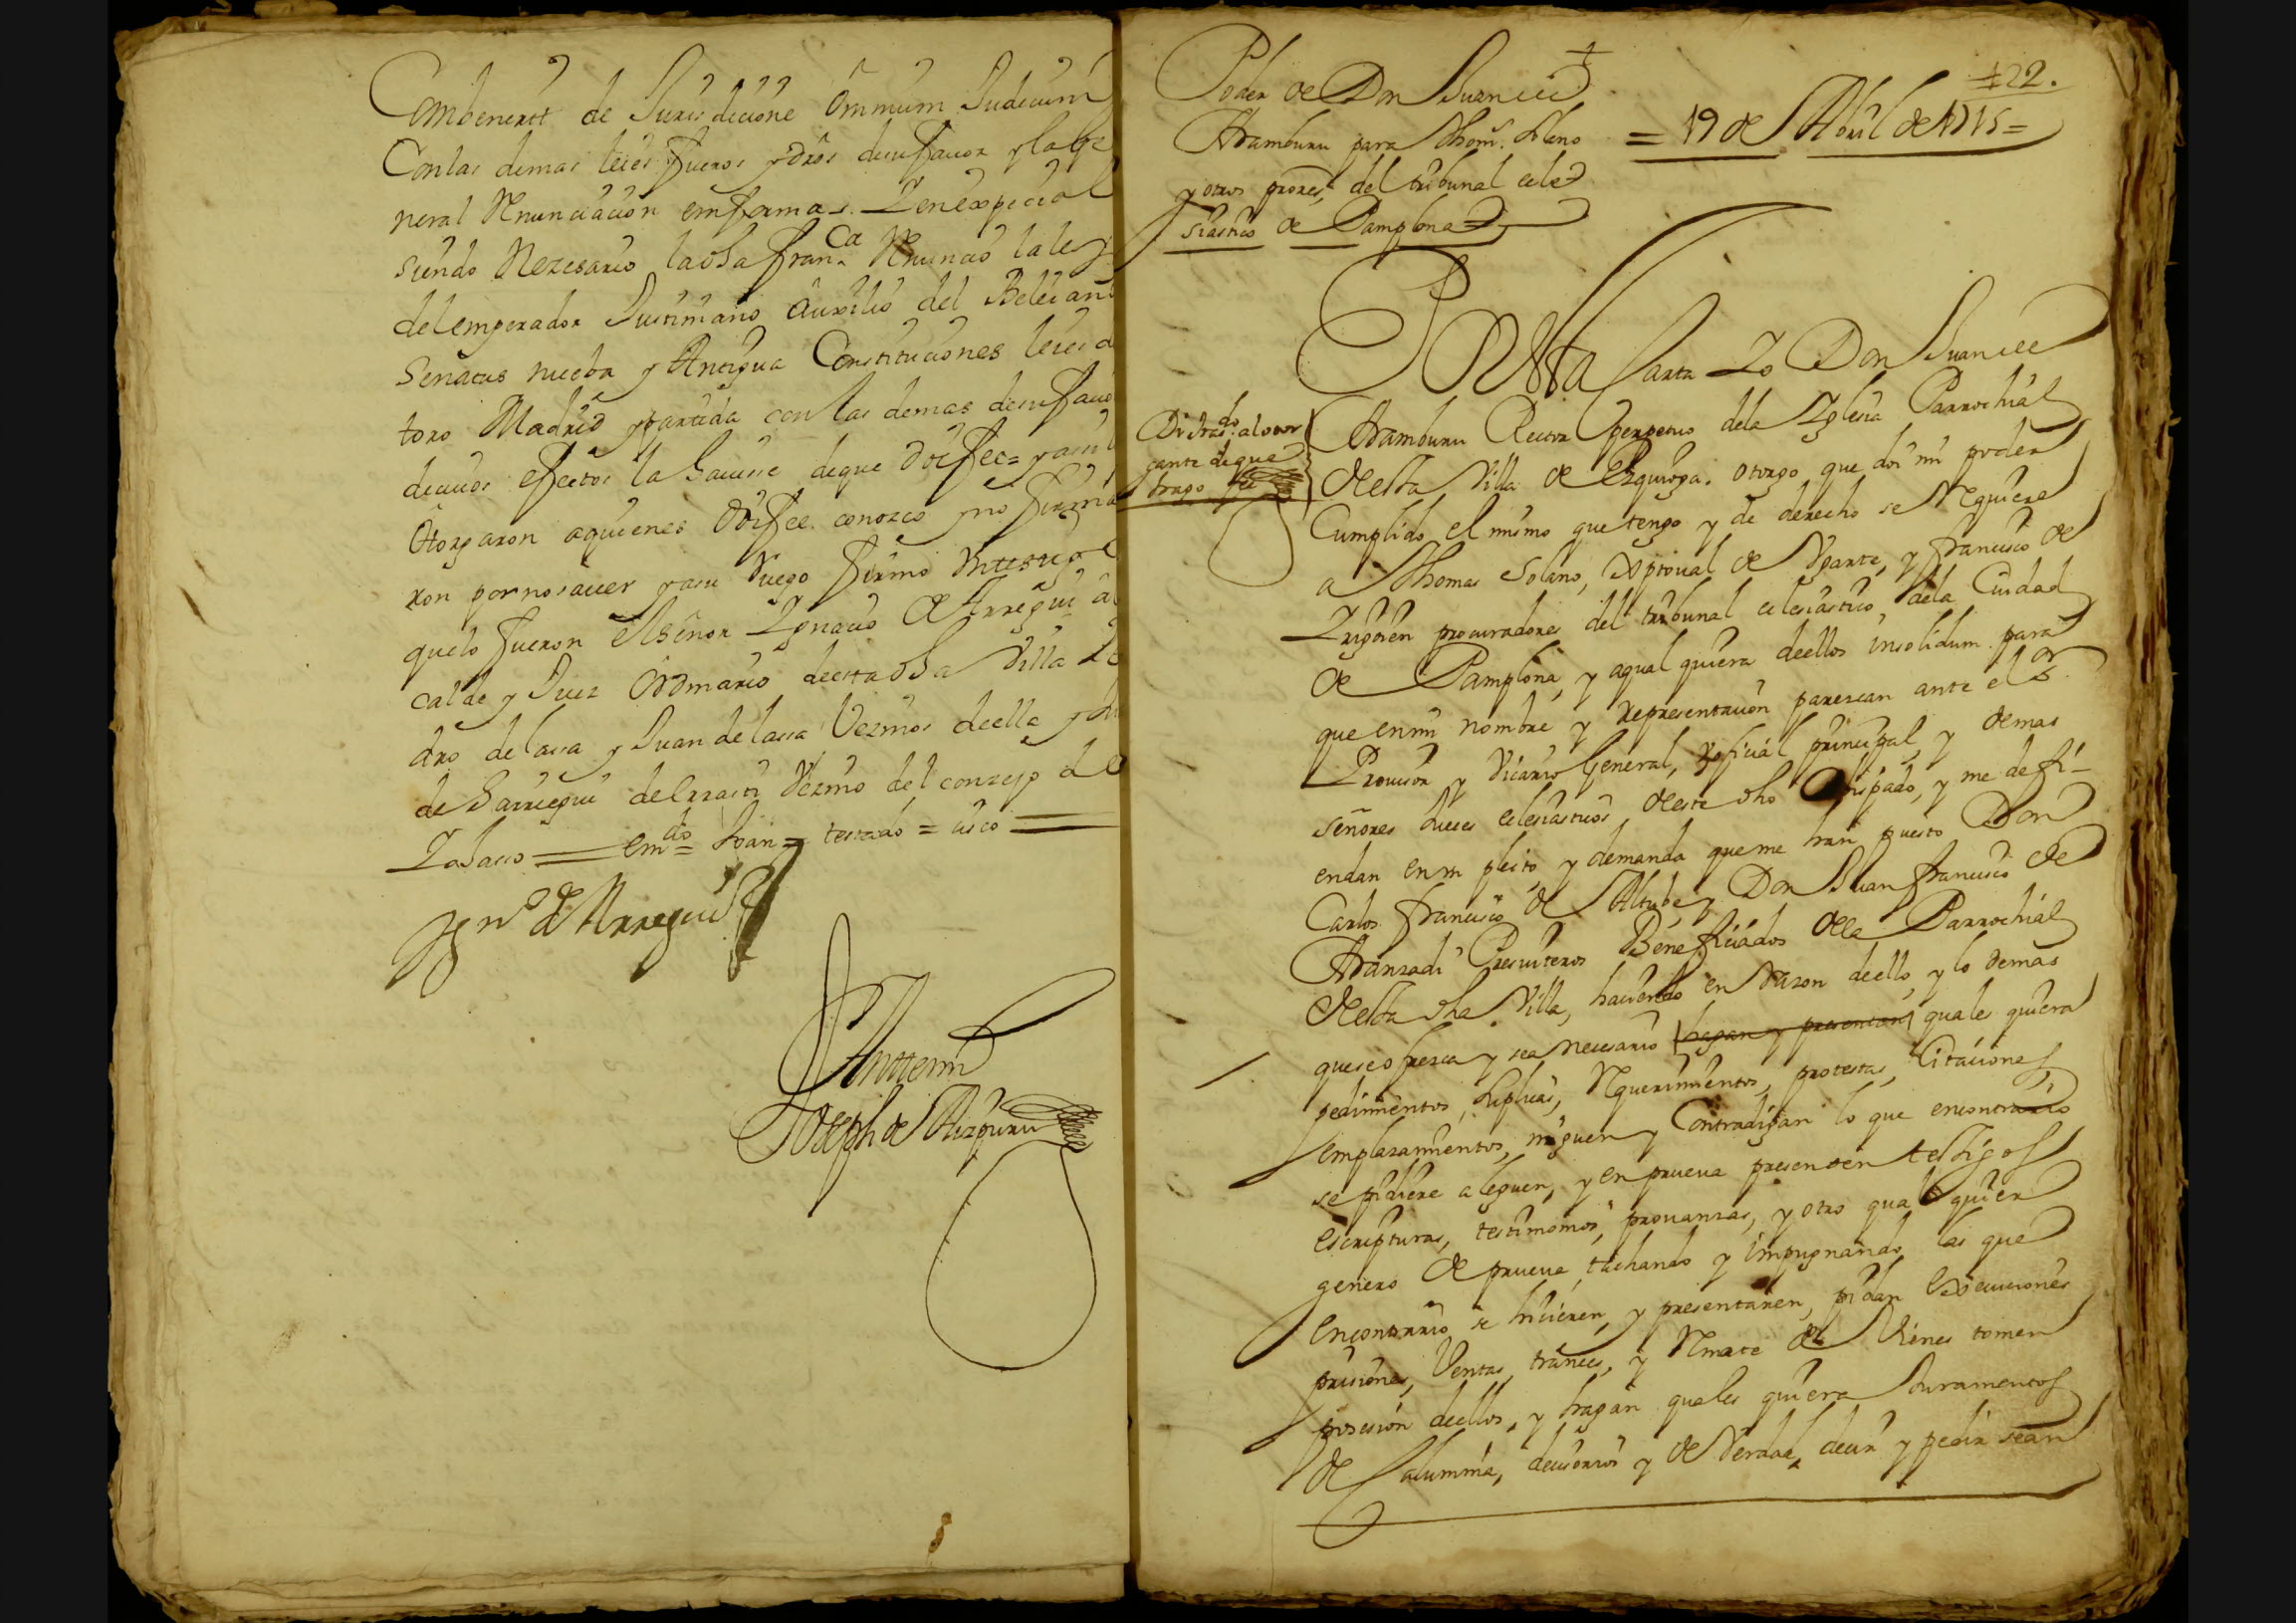 Combenerit de Jurisdicione omnium Judicum
Con las demas leies fueros y dros de su favor y la ge
neral Renunciacion em forma. Y en expecial
siendo Nezesario la dha Franca Renuncio la ley
del emperador Justiniano auxilio del Beleiano
Senatus nueba y Antigua Constituciones leies d
toro Madrid y partida con las demas de su favor
de cuios efectos la havise de que doi fee = y assi l
Otorgaron a quienes doi fee conozco y no firma
ron por no saver y a su Ruego firmo Un testigo
que lo fueron el señor Ignacio de Arregui al
calde y Juez Ordinario de esta dha Villa
dro de lassa y Juan de lassa Vezinos de ella y
de Barriegui de Vezino del conzejo de
emdo = Joan = testado = =
Igno de Arregui
Antemi
Joseph de Aizpuru
Poder de Don Juan
Aramburu para Thoms. Solano
y otros prores. del tribunal ecle
siastico de Pamplona
122.
= 19 de Abril de 1715 =
Por Esta Carta Yo Don Juan
Aramburu Rector perpetuo de la Yglesia Parrochial
Di traso. al otor
gante de que
hago fee
de esta Villa de Ezquioga. otorgo que doi mi poder
Cumplido el mismo que tengo y de derecho se Requiere
a Thomas Solano, Xptoual de Ygarte, y francisco de
Yrigoien procuradores del tribunal eclesiastico, de la Ciudad
de Pamplona, y a qual quiera de ellos insolidum para
que en mi nombre y representacion parezcan ante el Sor
Provisor y Vicario General, y oficial principal, y demas
señores Jueces eclesiasticos de este dho Obispado, y me defi-
endan en un pleito, y demanda que me han puesto Don
Carlos francisco de Altube, y Don Juan francisco de
Aranzadi Presuiteros Beneficiados de la Parrochial
de esta dha Villa, haciendo en razon de ello, y lo demas
que se ofrezca y sea necesario hagan y presenten quales quiera
pedimentos, suplicas, Requerimientos, protestas, Citaciones
emplazamientos, nieguen y Contradigan lo que en contrario
se pidiere aleguen, y en prueua presenten testigos
escripturas, testimonios, prouanzas, y otro qual quier
genero de prueua tachando y impugnando las que
en contrario se hicieren, y presentaren, pidan Execuciones
prisiones, Ventas, trances, y Remate de Vienes tomen
posesion de ellos, y hagan quales quiera Juramentos
de Calumnia, decisorios y de Verdad, decir y pedir sean